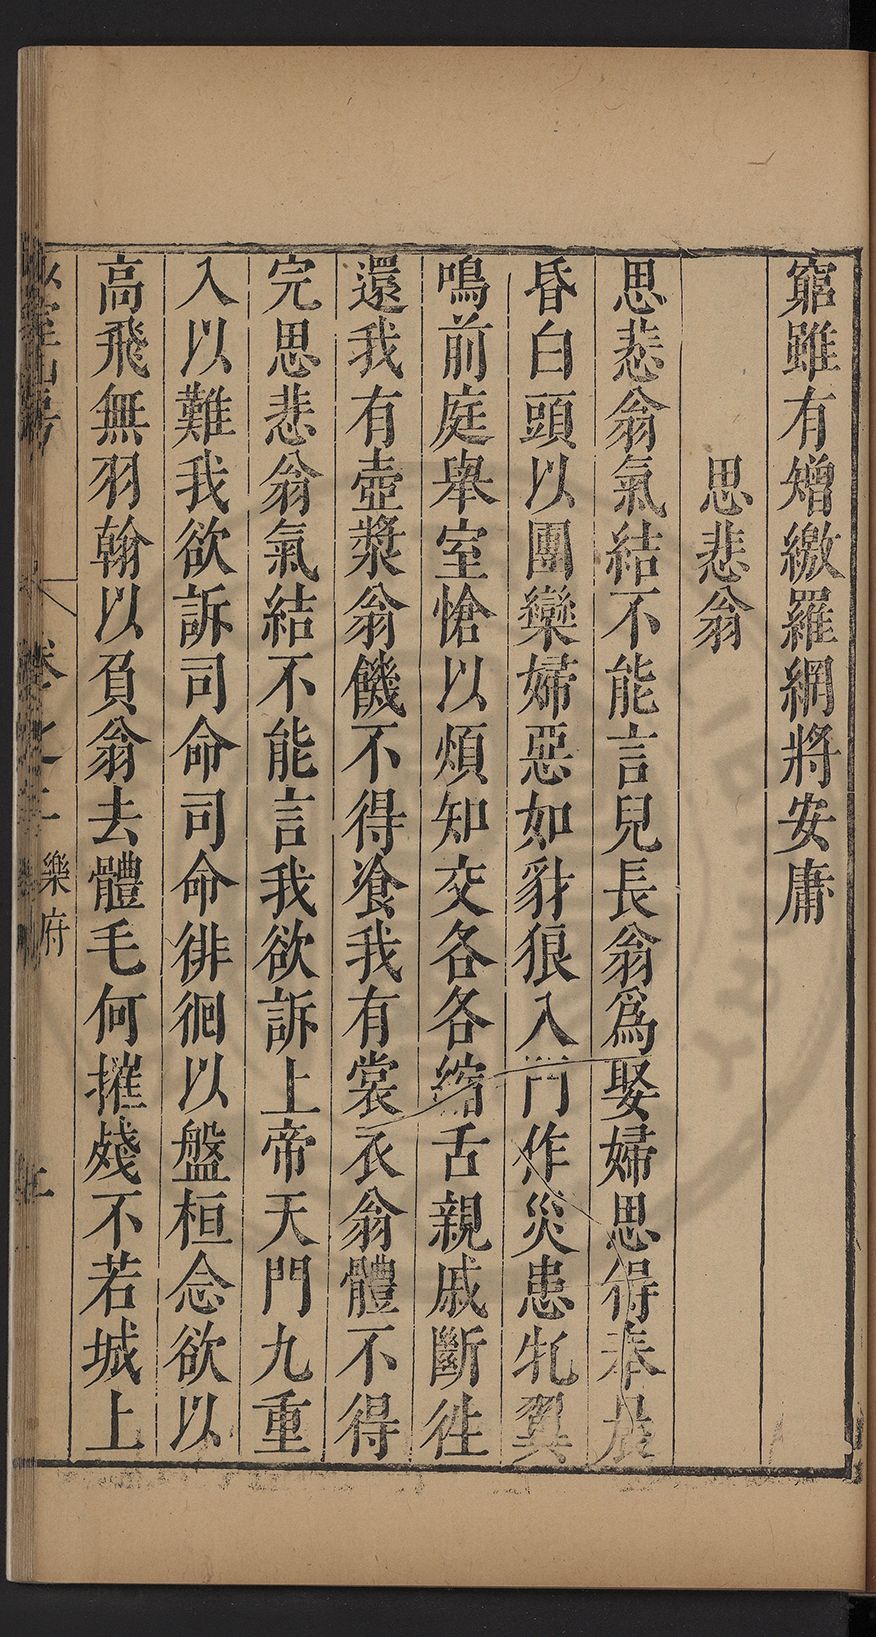 窮雖有矰繳羅網將安庸
思悲翁
思悲翁氣結不能言兒長翁爲娶婦思得奉晨
昏白頭以團欒婦惡如豺狼入門作災患牝翼
鳴前庭舉室愴以煩知交各各縮舌親戚斷徃
還我有壺漿翁饑不得飡我有裳衣翁體不得
完思悲翁氣結不能言我欲訴上帝天門九重
入以難我欲訴司命司命徘徊以盤桓念欲以
高飛無羽翰以負翁去體毛何摧殘不若城上
卷之二 樂府